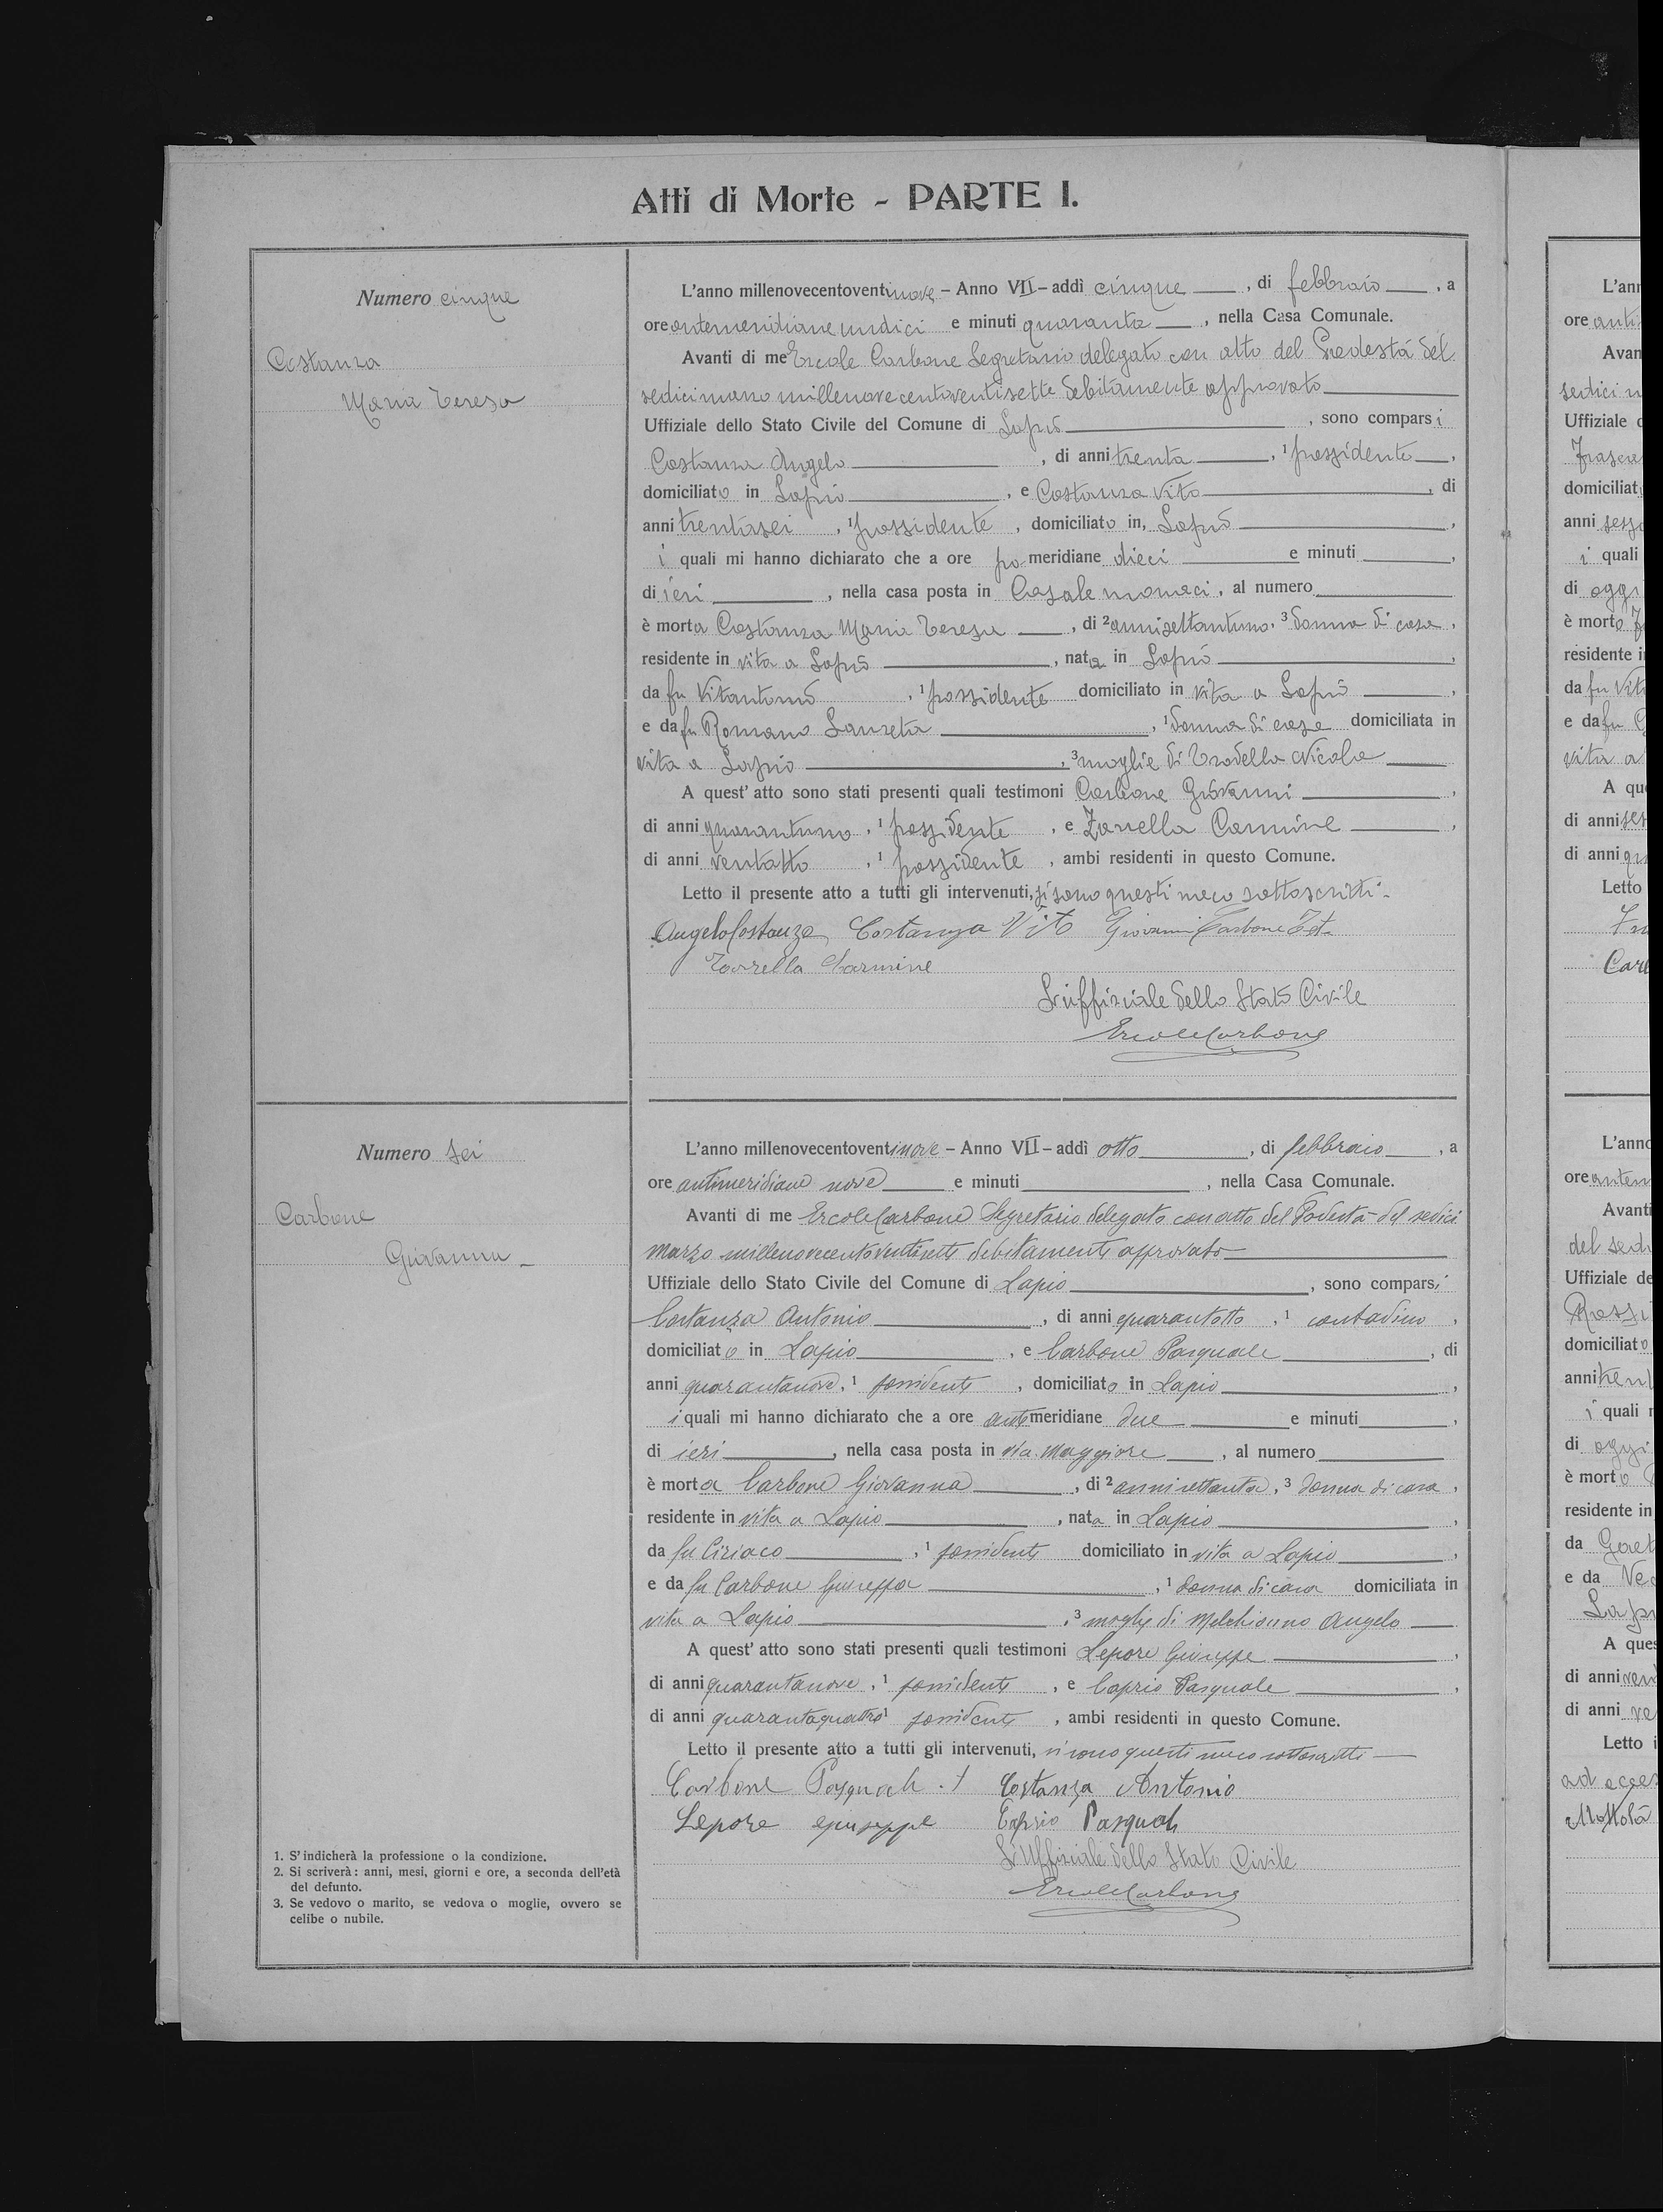 Atti di Morte - PARTE I.
Numero cinque
Costanza
Maria Teresa
L'anno millenovecentoventinove - Anno VII - addì cinque, di febbraio, a
ore antemeridiane undici e minuti quaranta, nella Casa Comunale.
Avanti di me Ercole Carbone Segretario delegato con atto del Podestà del
sedici marzo millenovecentoventisette debitamente approvato
Uffiziale dello Stato Civile del Comune di Lapio, sono comparsi
Costanza Angelo, di anni trenta, 1 possidente,
domiciliato in Lapio, e Costanza Vito, di
anni trentasei, 1 possidente, domiciliato in, Lapio,
i quali mi hanno dichiarato che a ore pomeridiane dieci e minuti,
di ieri, nella casa posta in Casale monaci, al numero
è morta Costanza Maria Teresa, di 2 anni settantuno, 3 donna di casa,
residente in vita a Lapio, nata in Lapio,
da fu Vitantonio, 1 possidente domiciliato in vita a Lapio,
e da fu Romano, 1 donna di casa domiciliata in
vita a Lapio, 3 moglie di Nicola
A quest' atto sono stati presenti quali testimoni Carbone Giovanni,
di anni quarantuno, 1 possidente, e Zarrella Carmine,
di anni ventotto, 1 possidente, ambi residenti in questo Comune.
Letto il presente atto a tutti gli intervenuti, si sono questi meco sottoscritti.
Angelo Costanza Costanza Vito Giovanni Carbone Test.
Zarrella Carmine
L'uffiziale dello Stato Civile
Ercole Carbone
Numero sei
Carbone
Giovanna
L'anno millenovecentoventinove - Anno VII - addì otto, di febbraio, a
ore antimeridiane nove e minuti, nella Casa Comunale.
Avanti di me Ercole Carbone Segretario delegato con atto del Podestà del sedici
marzo millenovecentoventisette debitamente approvato
Uffiziale dello Stato Civile del Comune di Lapio, sono comparsi
Costanza Antonio, di anni quarantotto, 1 contadino,
domiciliato in Lapio, e Carbone Pasquale, di
anni quarantanove, 1 possidente, domiciliato in Lapio,
i quali mi hanno dichiarato che a ore antimeridiane due e minuti,
di ieri, nella casa posta in via Maggiore, al numero
è morta Carbone Giovanna, di 2 anni settanta, 3 donna di casa,
residente in vita a Lapio, nata in Lapio,
da fu Ciriaco, 1 possidente domiciliato in vita a Lapio,
e da fu Carbone Giuseppa, 1 donna di casa domiciliata in
vita a Lapio, 3 moglie di Melchionno Angelo
A quest' atto sono stati presenti quali testimoni Lepore Giuseppe,
di anni quarantanove, 1 possidente, e Caprio Pasquale,
di anni quarantaquattro 1 possidente, ambi residenti in questo Comune.
Letto il presente atto a tutti gli intervenuti, si sono questi meco sottoscritti
Carbone Pasquale Costanza Antonio
Lepore giuseppe Caprio Pasquale
L'Uffiziale dello Stato Civile
Ercole Carbone
1. S' indicherà la professione o la condizione.
2. Si scriverà: anni, mesi, giorni e ore, a seconda dell'età
del defunto.
3. Se vedovo o marito, se vedova o moglie, ovvero se
celibe o nubile.